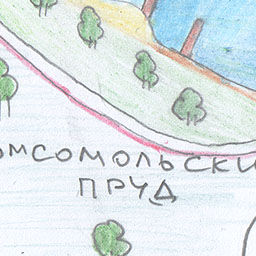 ОМСОМОЛЬСКИ
ПРУД